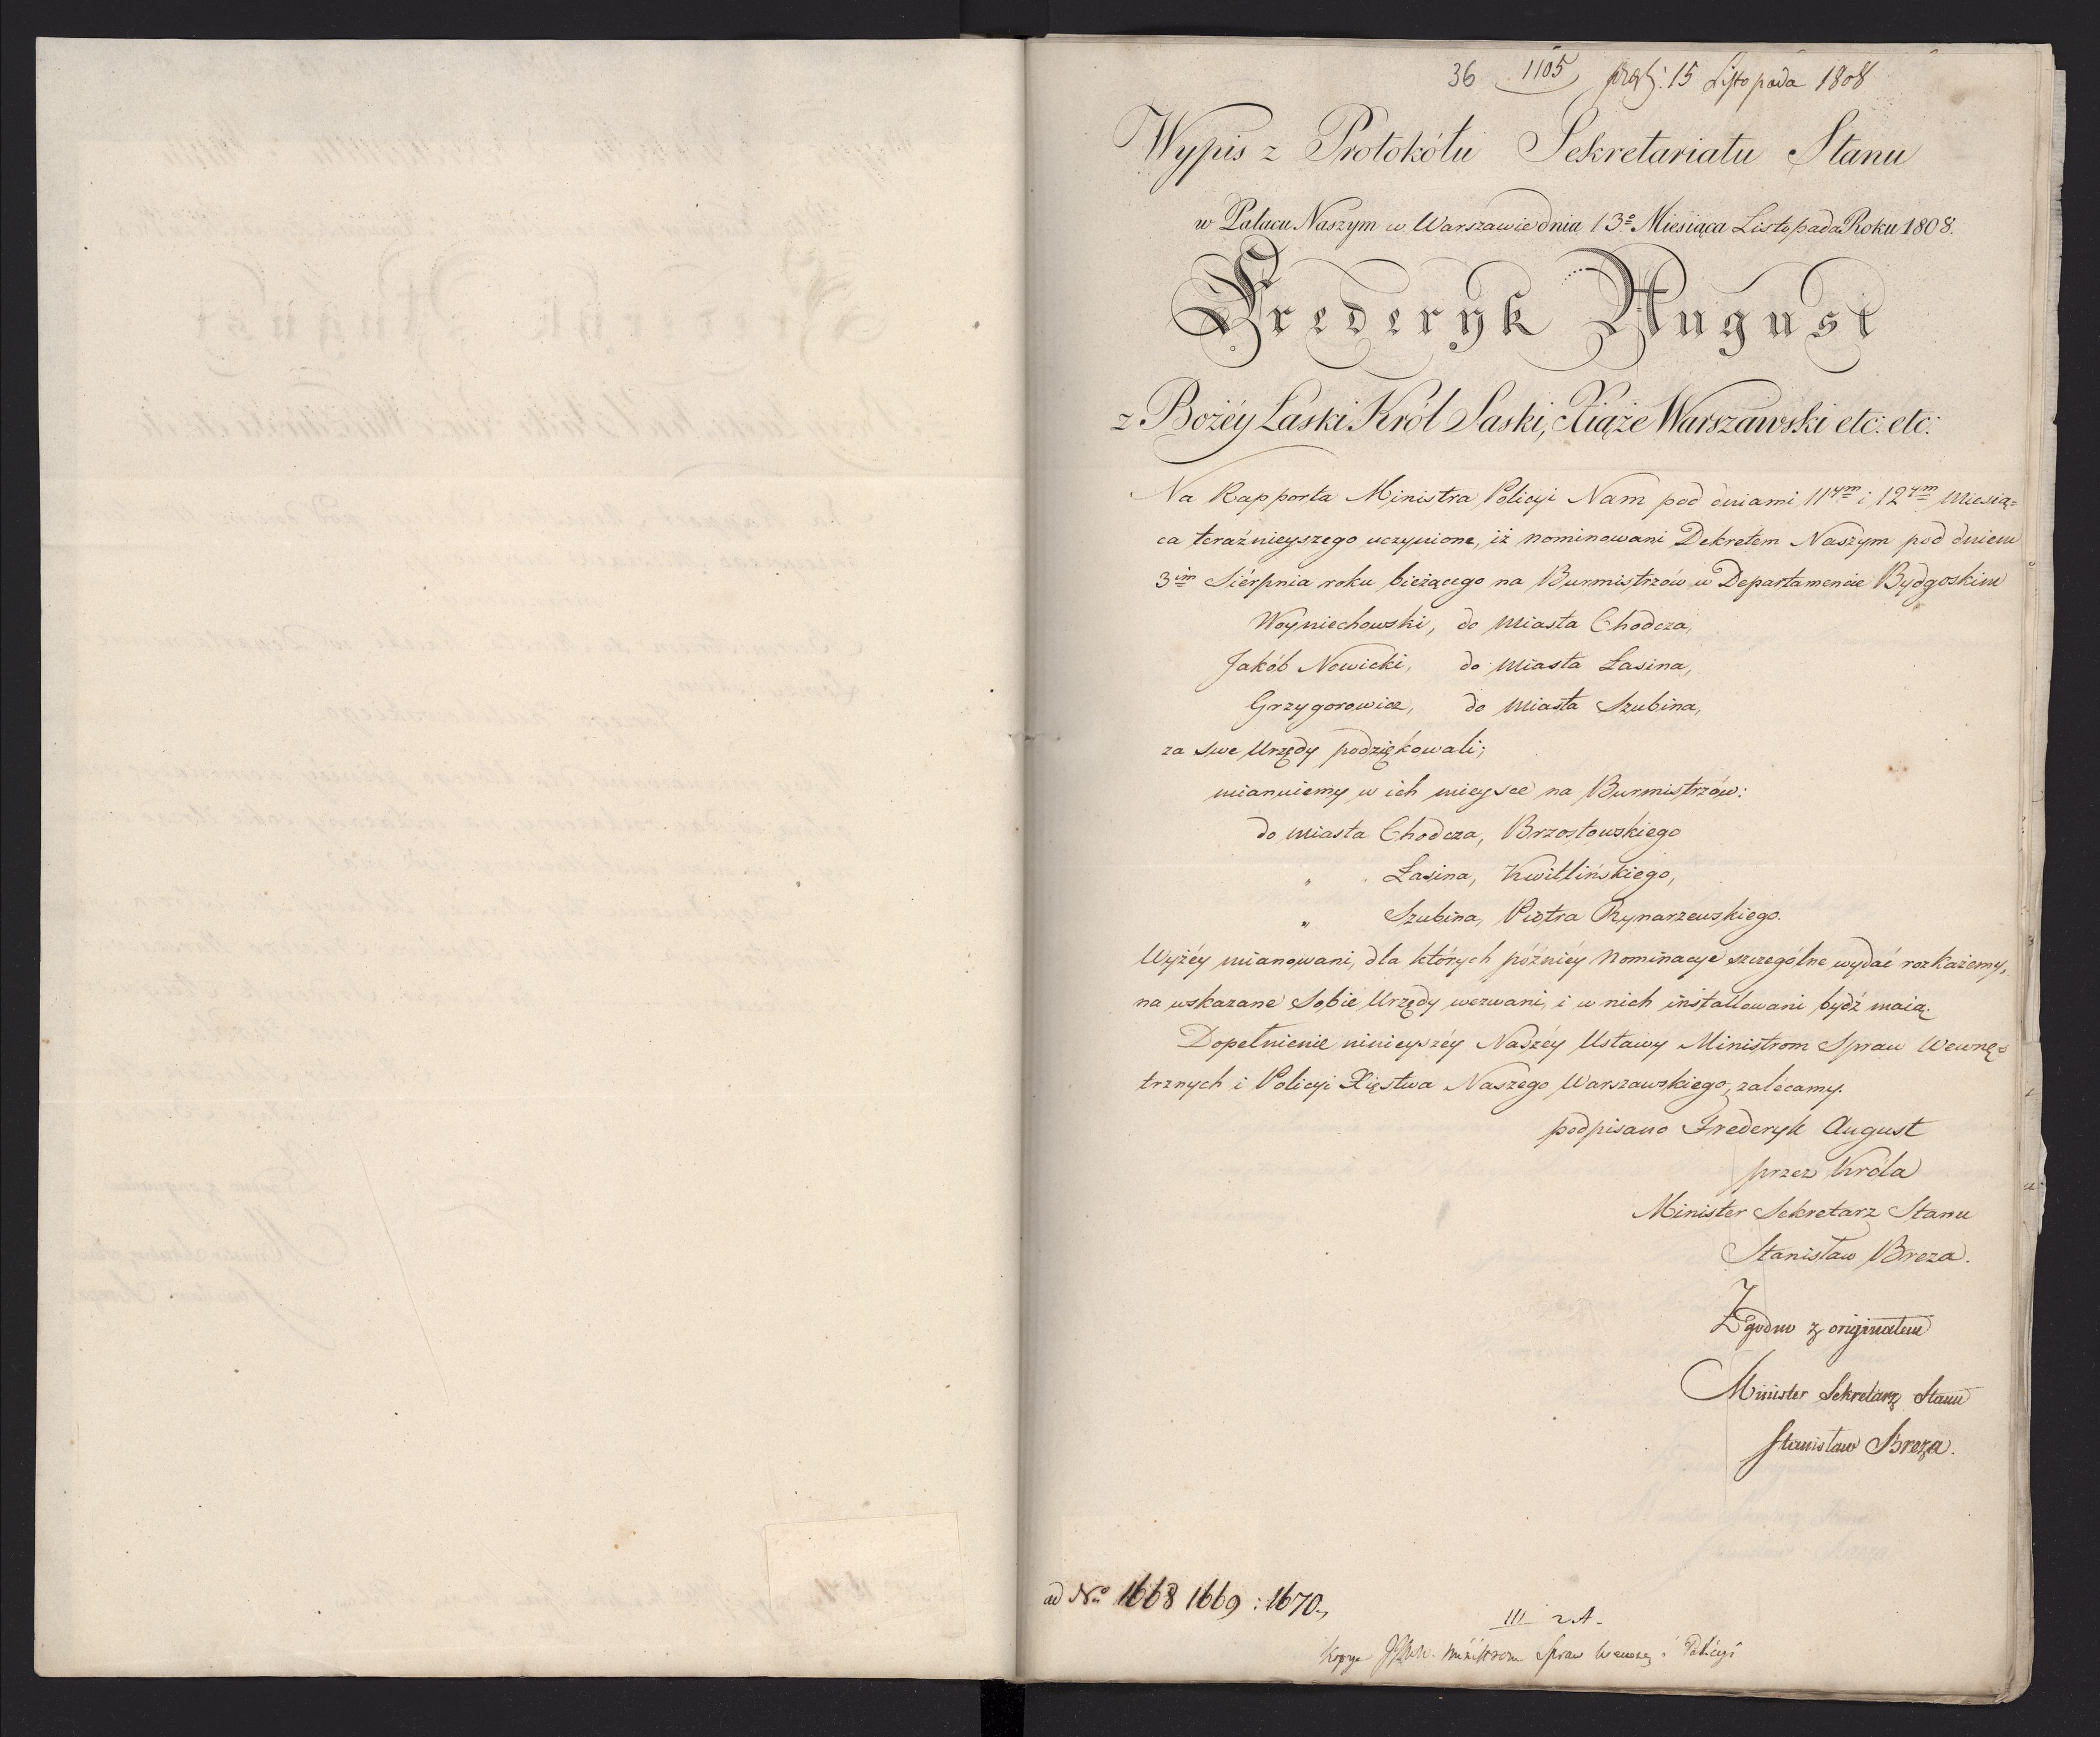 36 1105 15 Listopada 1808
Wypis z Protokółu Sekretariatu Stanu
w Pałacu Naszym w Warszawie dnia 13º Miesiąca Listopada Roku 1808.
Frederyk August
z Bożéy Łaski Król Saski, Xiąże Warszawski etc: etc:
Na Rapporta Ministra Policyi Nam pod dniami 11ym i 12ym miesią=
ca teraźnieyszego uczynione, iż nominowani Dekretem Naszym pod dniem
3im Siérpnia roku bieżącego na Burmistrzów w Departamencie Bydgoskim
Woyniechowski, do miasta Chodcza,
Jakób Nowicki, do miasta Łasina,
Grzygorowicz, do miasta Szubina,
za swe Urzędy podziękowali;
mianuiemy w ich mieysce na Burmistrzów:
do miasta Chodcza, Brzostowskiego
" Łasina, Kwitlińskiego,
" Szubina, Piotra Rynarzewskiego.
Wyżéy mianowani, dla których późniéy Nominacye szczególne wydać rozkażemy,
na wskazane Sobie Urzędy wezwani, i w nich installowani bydź maią.
Dopełnienie ninieyszéy Naszéy Ustawy Ministrom Spraw Wewnę=
trznych i Policyi Xięstwa Naszego Warszawskiego, zalecamy.
podpisano Frederyk August
przez Króla
Minister Sekretarz Stanu
Stanisław Breza.
Zgodno z originałem
Minister Sekretarz Stanu
Stanisław Breza.
ad No 1668 1669 : 1670.
III 2 A.
Kopye Ministrom Spraw Wewnę: i Policyi